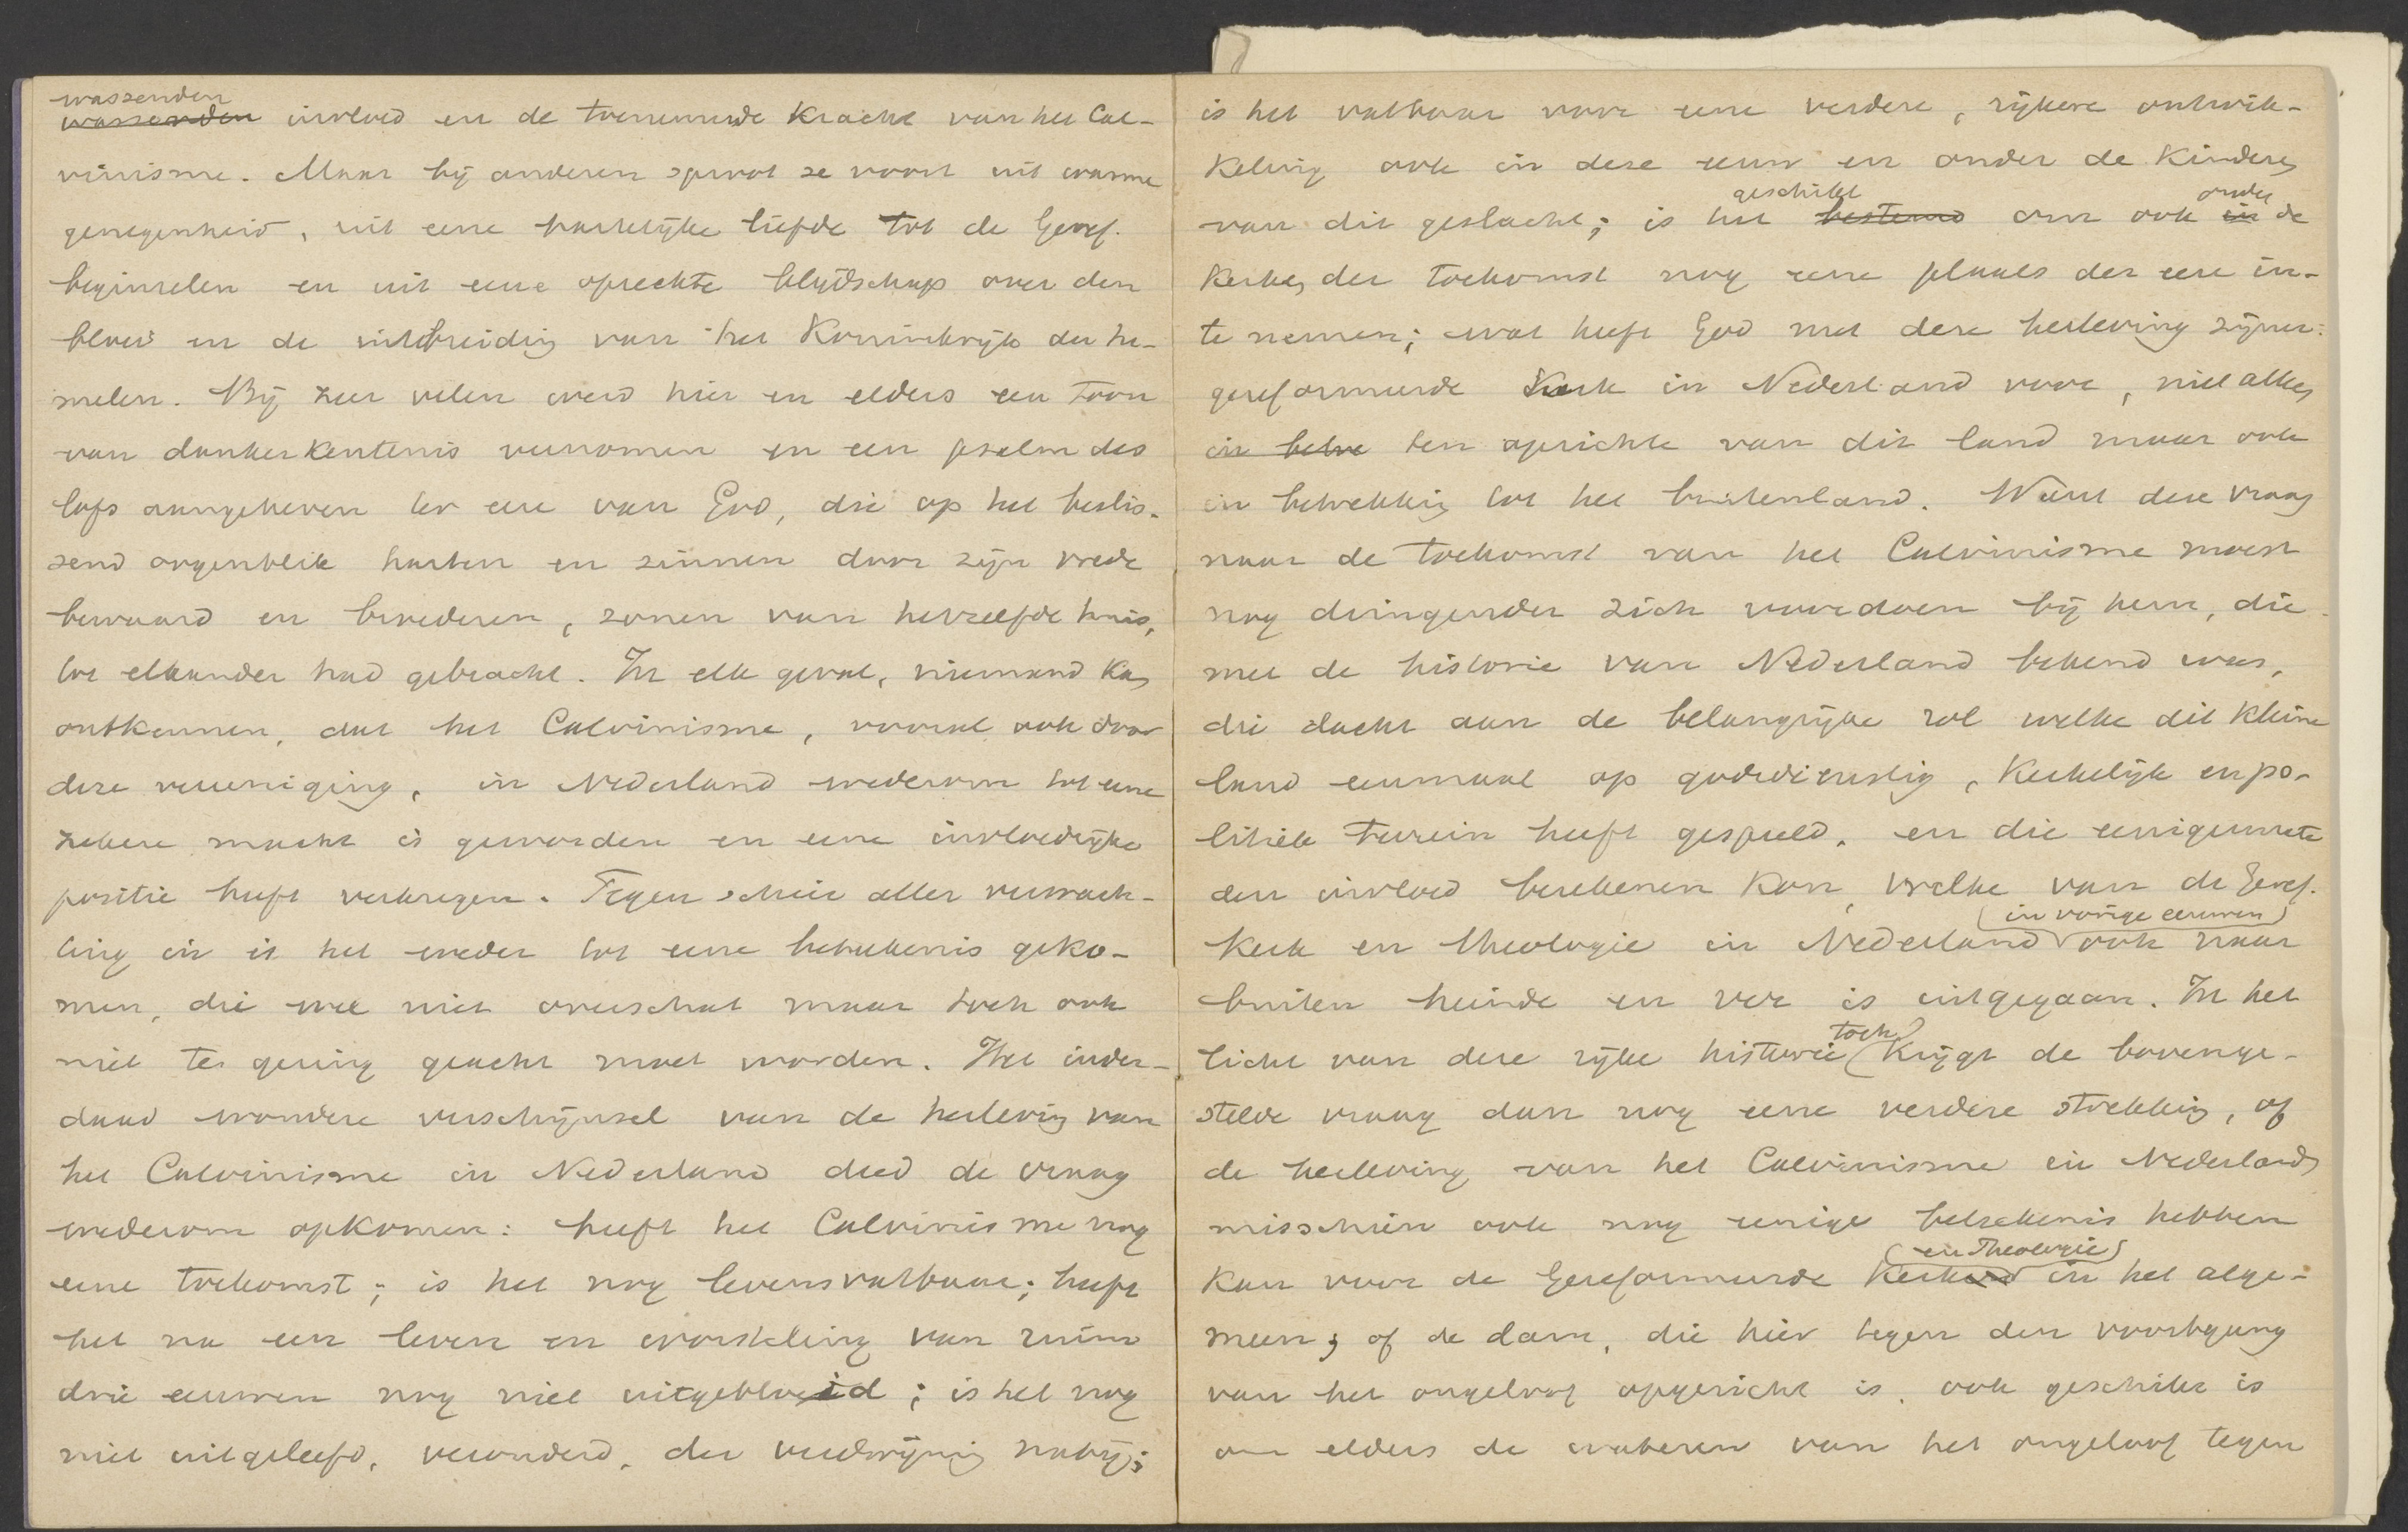 wassenden
wassenden invloed en de toenemende kracht van het Cal-
vinisme. Maar bij anderen sproot ze voort uit warme
genegenheid, uit eene hartelijke liefde tot de Geref.
beginselen en uit eene oprechte blijdschap over den
bloei en de uitbreiding van het Koninkrijk der he-
melen. Bij zeer velen werd hier en elders een toon
van dankerkentenis vernomen en een psalm des
lofs aangeheven ter eere van God, die op het beslis-
send oogenblik harten en zinnen door zijn vrede
bewaard en broederen, zonen van hetzelfde huis,
tot elkander had gebracht. In elk geval, niemand kan
ontkennen, dat het Calvinisme, vooral ook door
deze vereeniging, in Nederland wederom tot eene
zekere macht is geworden en eene invloedrijke
positie heeft verkregen. Tegen schier aller verwach-
ting in is het weder tot eene beteekenis geko-
men, die wel niet overschat maar toch ook
niet te gering geacht moet worden. Het inder-
daad wondere verschijnsel van de herleving van
het Calvinisme in Nederland deed de vraag
wederom opkomen: heeft het Calvinisme nog
eene toekomst; is het nog levensvatbaar; heeft
het na een leven en worsteling van ruim
drie eeuwen nog niet uitgebloeid; is het nog
niet uitgeleefd, verouderd, der verdwijning nabij;
is het vatbaar voor eene verdere, rijkere ontwik-
keling ook in deze eeuw en onder de kinderen
geschikt onder
van dit geslacht; is het bestemd om ook in de
kerken der toekomst nog eene plaats der eere in-
te nemen; wat heeft God met deze herleving zijner
gereformeerde Kerk in Nederland voor, niet alleen
in betre ten opzichte van dit land maar ook
in betrekking tot het buitenland. Want deze vraag
naar de toekomst van het Calvinisme moest
nog dringender zich voordoen bij hem, die
met de historie van Nederland bekend was,
die dacht aan de belangrijke rol welke dit kleine
land eenmaal op godsdienstig, kerkelijk en po-
litiek terrein heeft gespeeld, en die eenigermate
den invloed berekenen kon, welke van de Geref.
(in vorige eeuwen)
Kerk en theologie in Nederland ook naar
buiten heinde en ver is uitgegaan. In het
toch
licht van deze rijke historie krijgt de bovenge-
stelde vraag dan nog eene verdere strekking, of
de herleving van het Calvinisme in Nederland
misschien ook nog eenige beteekenis hebben
(en Theologie)
kan voor de Gereformeerde Kerken in het alge-
meen; of de dam, die hier tegen den voortgang
van het ongeloof opgericht is, ook geschikt is
om elders de wateren van het ongeloof tegen